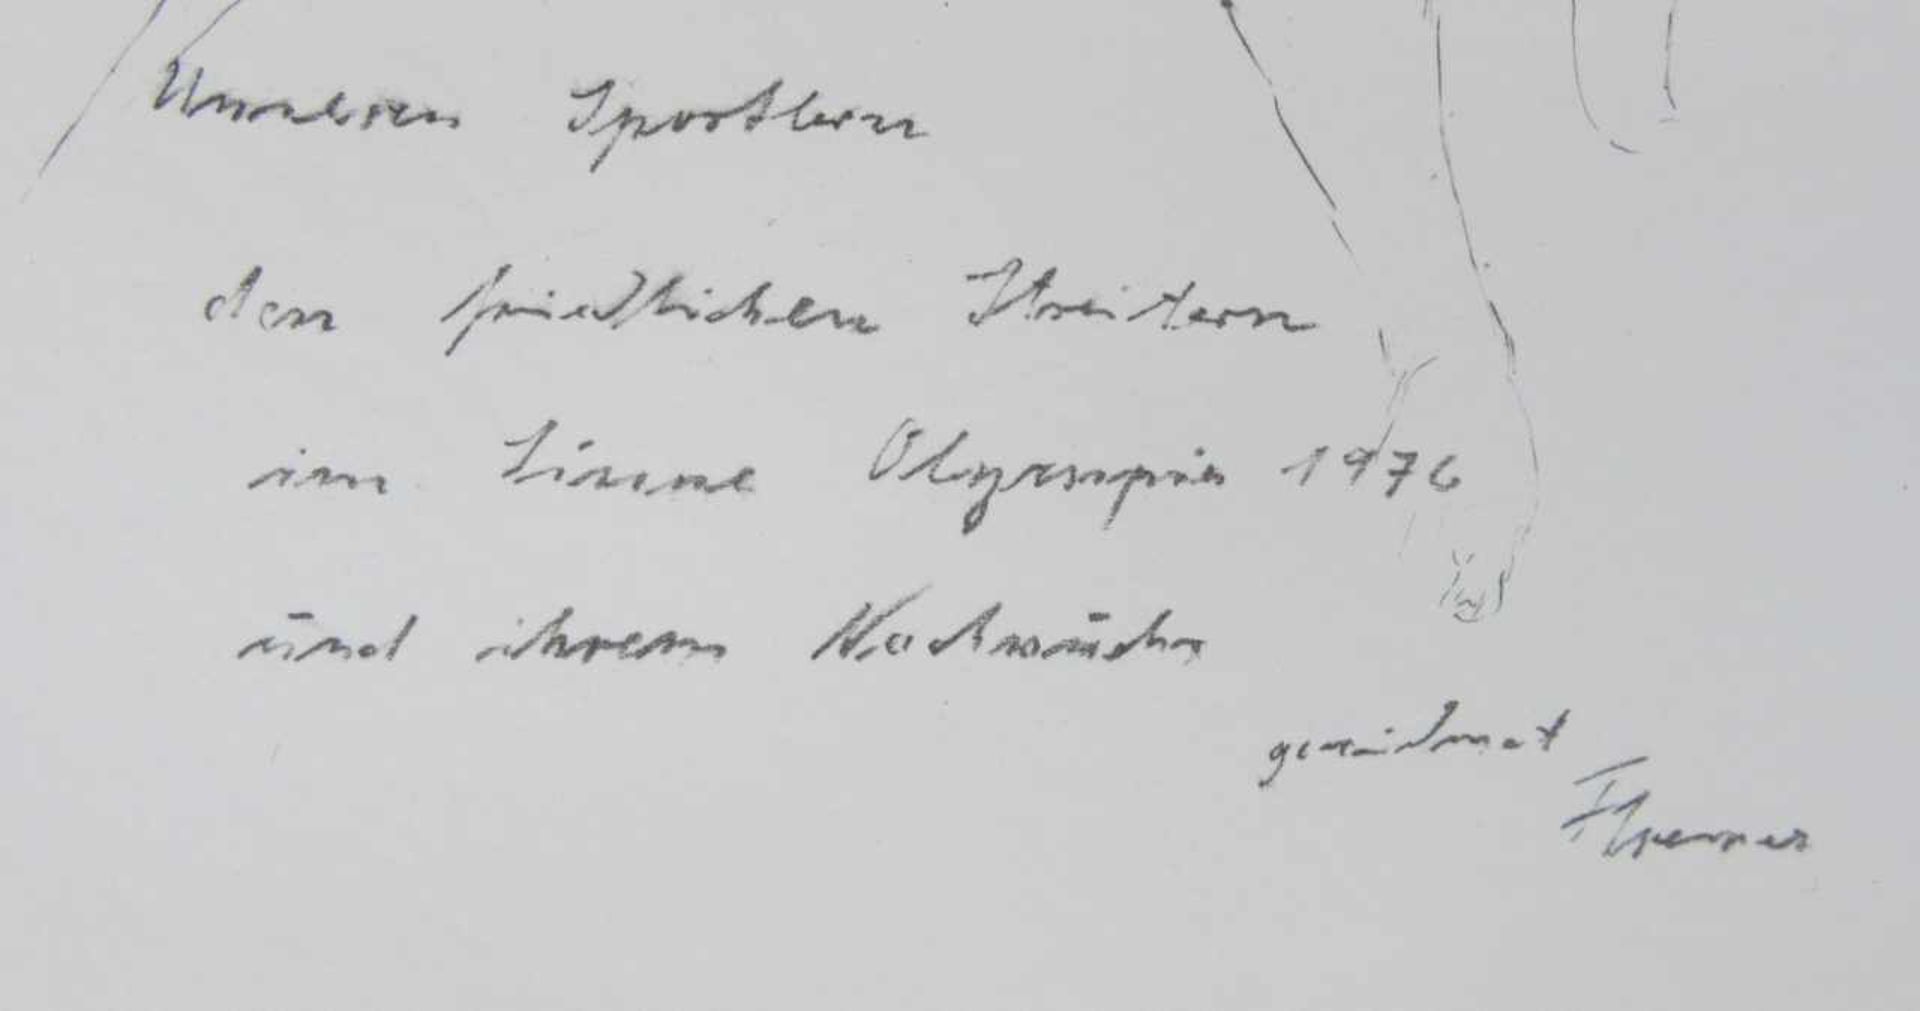 Unseren Sportlern
den friedlichen Streitern
im Sinne Olympias 1976
und ihrem Nachwuchs
gewidmet